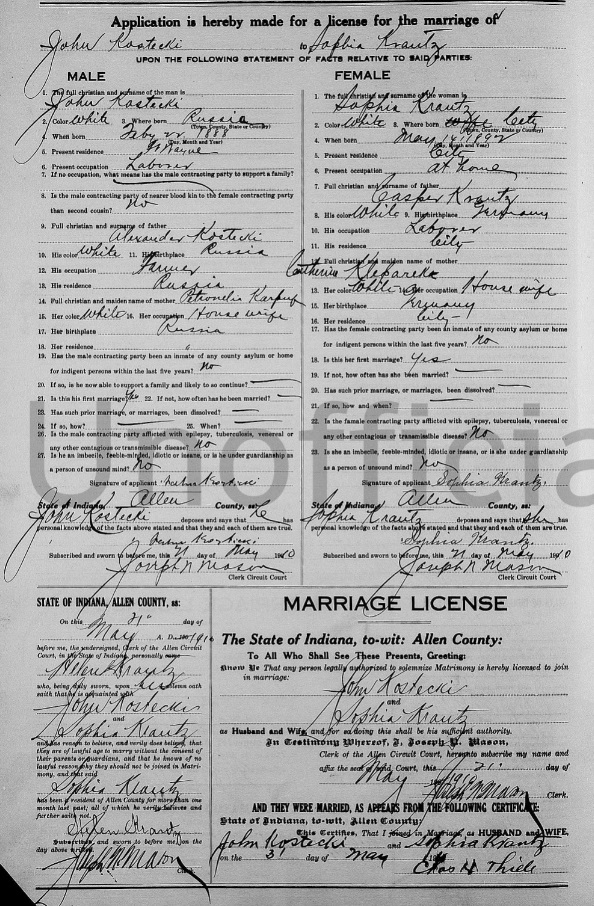 Application is hereby made for a license for the marriage of
John Kostecki to Sophia Krautz
UPON THE FOLLOWING STATEMENT OF FACTS RELATIVE TO SAID PARTIES:
MALE
1. The full christian and surname of the man is
John Kostecki
2. Color White 3. Where born Russia
(Town, County, State or Country)
4. When born Feby 22, 1888
(Day, Month and Year)
5. Present residence Ft Wayne
6. Present occupation Laborer
7. If no occupation, what means has the male contracting party to support a family?
8. Is the male contracting party of nearer blood kin to the female contracting party
than second cousin? No
9. Full christian and surname of father
Alexander Kostecki
10. His color White 11. His birthplace Russia
12. His occupation Farmer
13. His residence Russia
14. Full christian and maiden name of mother Petronelia
15. Her color White 16. Her occupation House wife
17. Her birthplace Russia
18. Her residence "
19. Has the male contracting party been an inmate of any county asylum or home
for indigent persons within the last five years? No
20. If so, is he now able to support a family and likely to continue so?
21. Is this his first marriage? Yes 22. If not, how often has he been married?
23. Has such prior marriage, or marriages, been dissolved?
24. If so, how? 25. When?
26. Is the male contracting party afflicted with epilepsy, tuberculosis, venereal or
any other contagious or transmissible disease? No
27. Is he an imbecile, feeble-minded, idiotic or insane, or is he under guardianship
as a person of unsound mind? No
Signature of applicant
State of Indiana, Allen County, ss:
John Kostecki deposes and says that he has
personal knowledge of the facts above stated and that they and each of them are true.
Subscribed and sworn to before me, this 21 day of May 1910
Joseph N Mason
Clerk Circuit Court
FEMALE
1. The full christian and surname of the woman is
Sophia Krautz
2. Color White 3. Where born City
(Town, County, State or Country)
4. When born May 14, 1892
(Day, Month and Year)
5. Present residence City
6. Present occupation At home
7. Full christian and surname of father
Casper Krautz
8. His color White 9. His birthplace Germany
10. His occupation Laborer
11. His residence City
12. Full christian and maiden name of mother
Catherine
13. Her color White 14. Her occupation House wife
15. Her birthplace Germany
16. Her residence City
17. Has the female contracting party been an inmate of any county asylum or home
for indigent persons within the last five years? No
18. Is this her first marriage? Yes
19. If not, how often has she been married?
20. Has such prior marriage, or marriages, been dissolved?
21. If so, how and when?
22. Is the female contracting party afflicted with epilepsy, tuberculosis, venereal or
any other contagious or transmissible disease? No
23. Is she an imbecile, feeble-minded, idiotic or insane, or is she under guardianship
as a person of unsound mind? No
Signature of applicant Sophia Krantz
State of Indiana, Allen County, ss:
Sophia Krautz deposes and says that she has
personal knowledge of the facts above stated and that they and each of them are true.
Sophia Krantz
Subscribed and sworn to before me, this 21 day of May 1910
Joseph N Mason
Clerk Circuit Court
Unofficia
STATE OF INDIANA, ALLEN COUNTY, ss:
On this 21" day of
May A. D. 1910
before me, the undersigned, Clerk of the Allen Circuit
Court, in the State of Indiana, personally came
Helen Krautz
who, being duly sworn, upon her solemn oath
saith that she is acquainted with
John Kostecki
and
Sophia Krautz
and has reason to believe, and verily does believe, that
they are of lawful age to marry without the consent of
their parents or guardians, and that he knows of no
lawful reason why they should not be joined in Matri-
mony, and that said
Sophia Krautz
has been a resident of Allen County for more than one
month last past; all of which he verily believes and
further saith not.
Helen Krantz
Subscribed and sworn to before me, the
day above written.
Joseph N Mason
Clerk
MARRIAGE LICENSE
The State of Indiana, to-wit: Allen County:
To All Who Shall See These Presents, Greeting:
Know Ye That any person legally authorized to solemnize Matrimony is hereby licensed to join
in marriage:
John Kostecki
and
Sophia Krautz
as Husband and Wife, and for so doing this shall be his sufficient authority.
In Testimony Whereof, I, Joseph N. Mason,
Clerk of the Allen Circuit Court, hereunto subscribe my name and
affix the seal of said Court, this 21" day of
May 1910
Joseph N Mason Clerk.
AND THEY WERE MARRIED, AS APPEARS FROM THE FOLLOWING CERTIFICATE:
State of Indiana, to-wit, Allen County:
This Certifies, That I joined in Marriage, as HUSBAND and WIFE,
John Kostecki and Sophia Krantz
on the 3 day of May 1910
Chas H Thiele